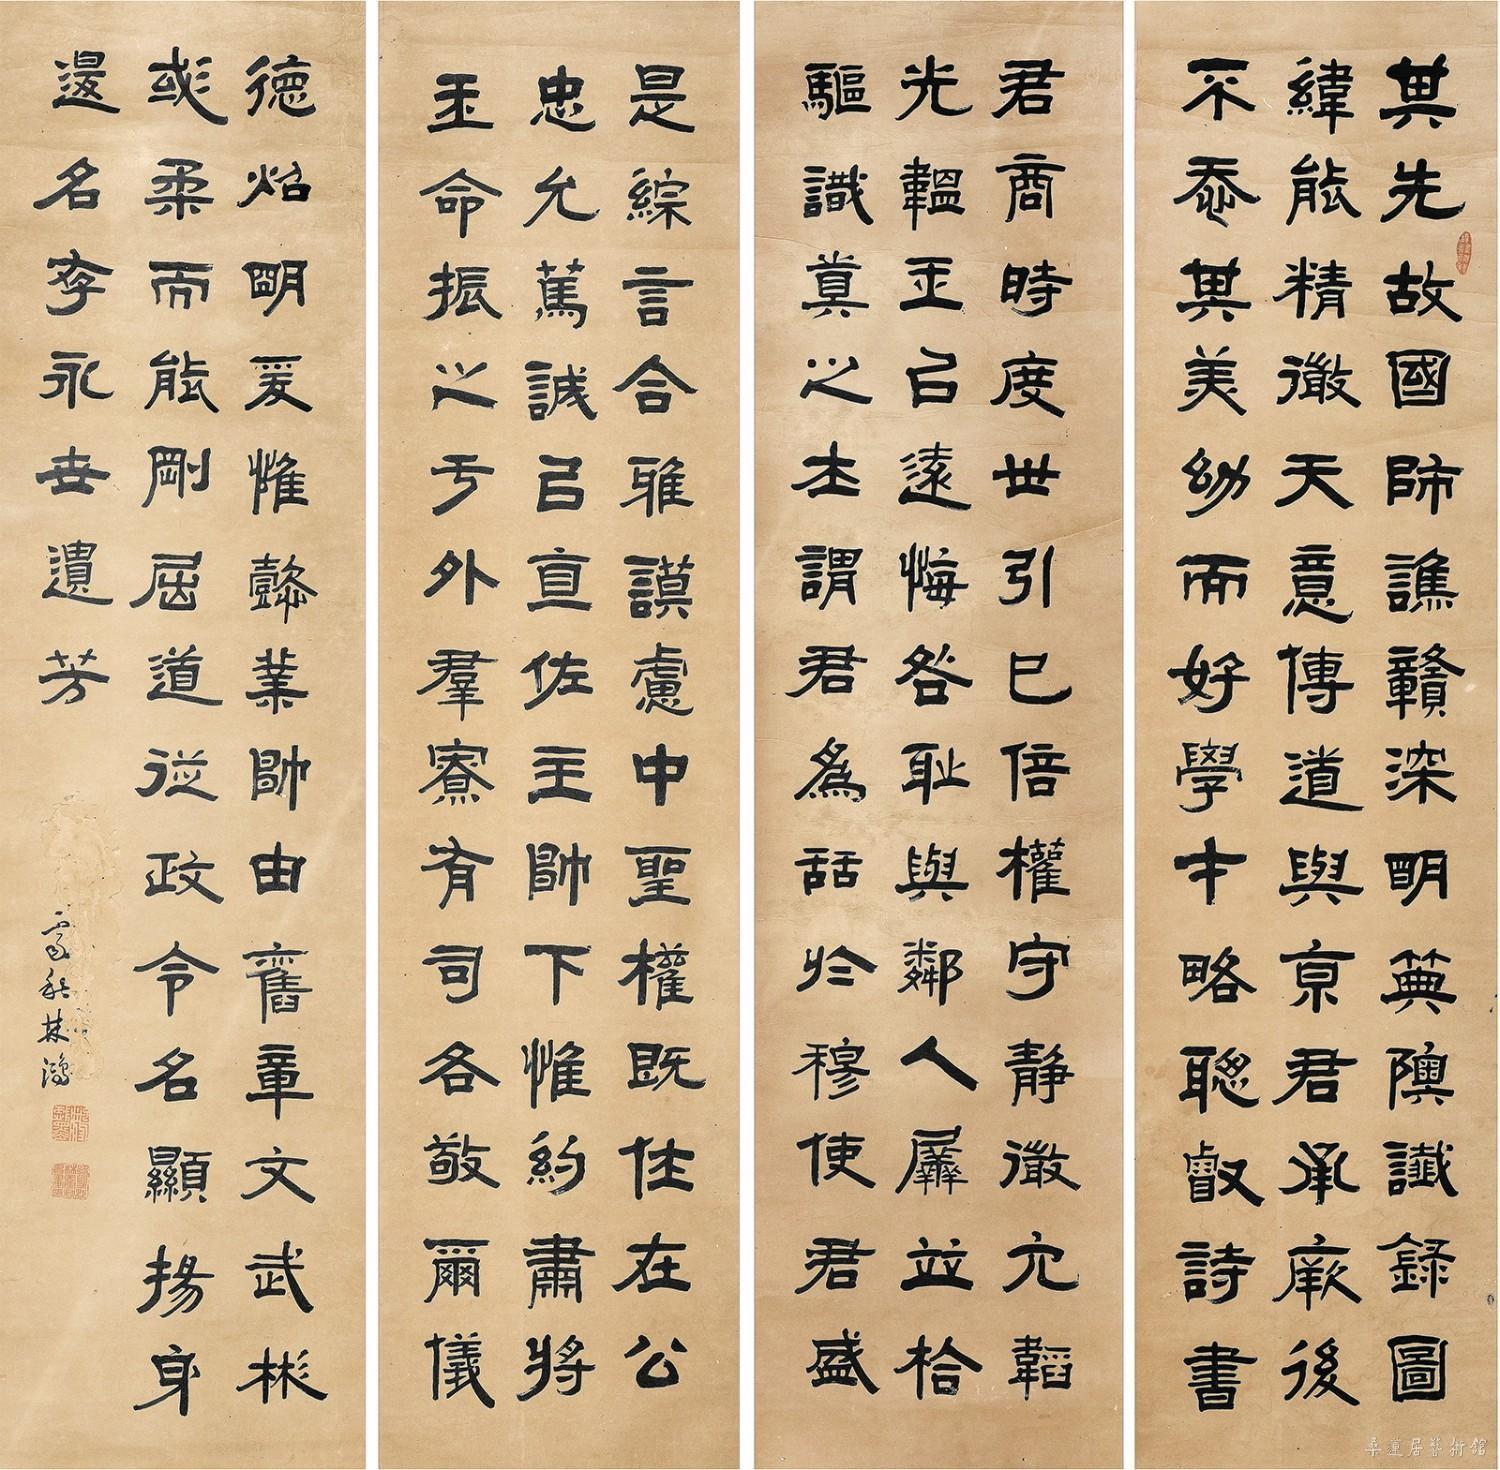 其先故國師譙贛深明典隩讖錄圖
緯能精微天意傳道與京君承厥後
不忝其美幼而好學才略聰叡詩書
君商時度世引已倍權守靜微冗韜
光韞玉以遠悔咎恥與鄰人羼並拾
驅識真之士謂君為話於穆使君盛
是綜言合雅謨慮中聖權既住在公
忠允篤誠以宣佐主帥下惟約肅將
王命振之于外羣寮有司各敬爾儀
德炤明爰惟懿業帥由舊章文武彬
彧柔而能剛屈道從政令名顯揚身
退名存永世遺芳
林鴻
桑蓮居藝術館